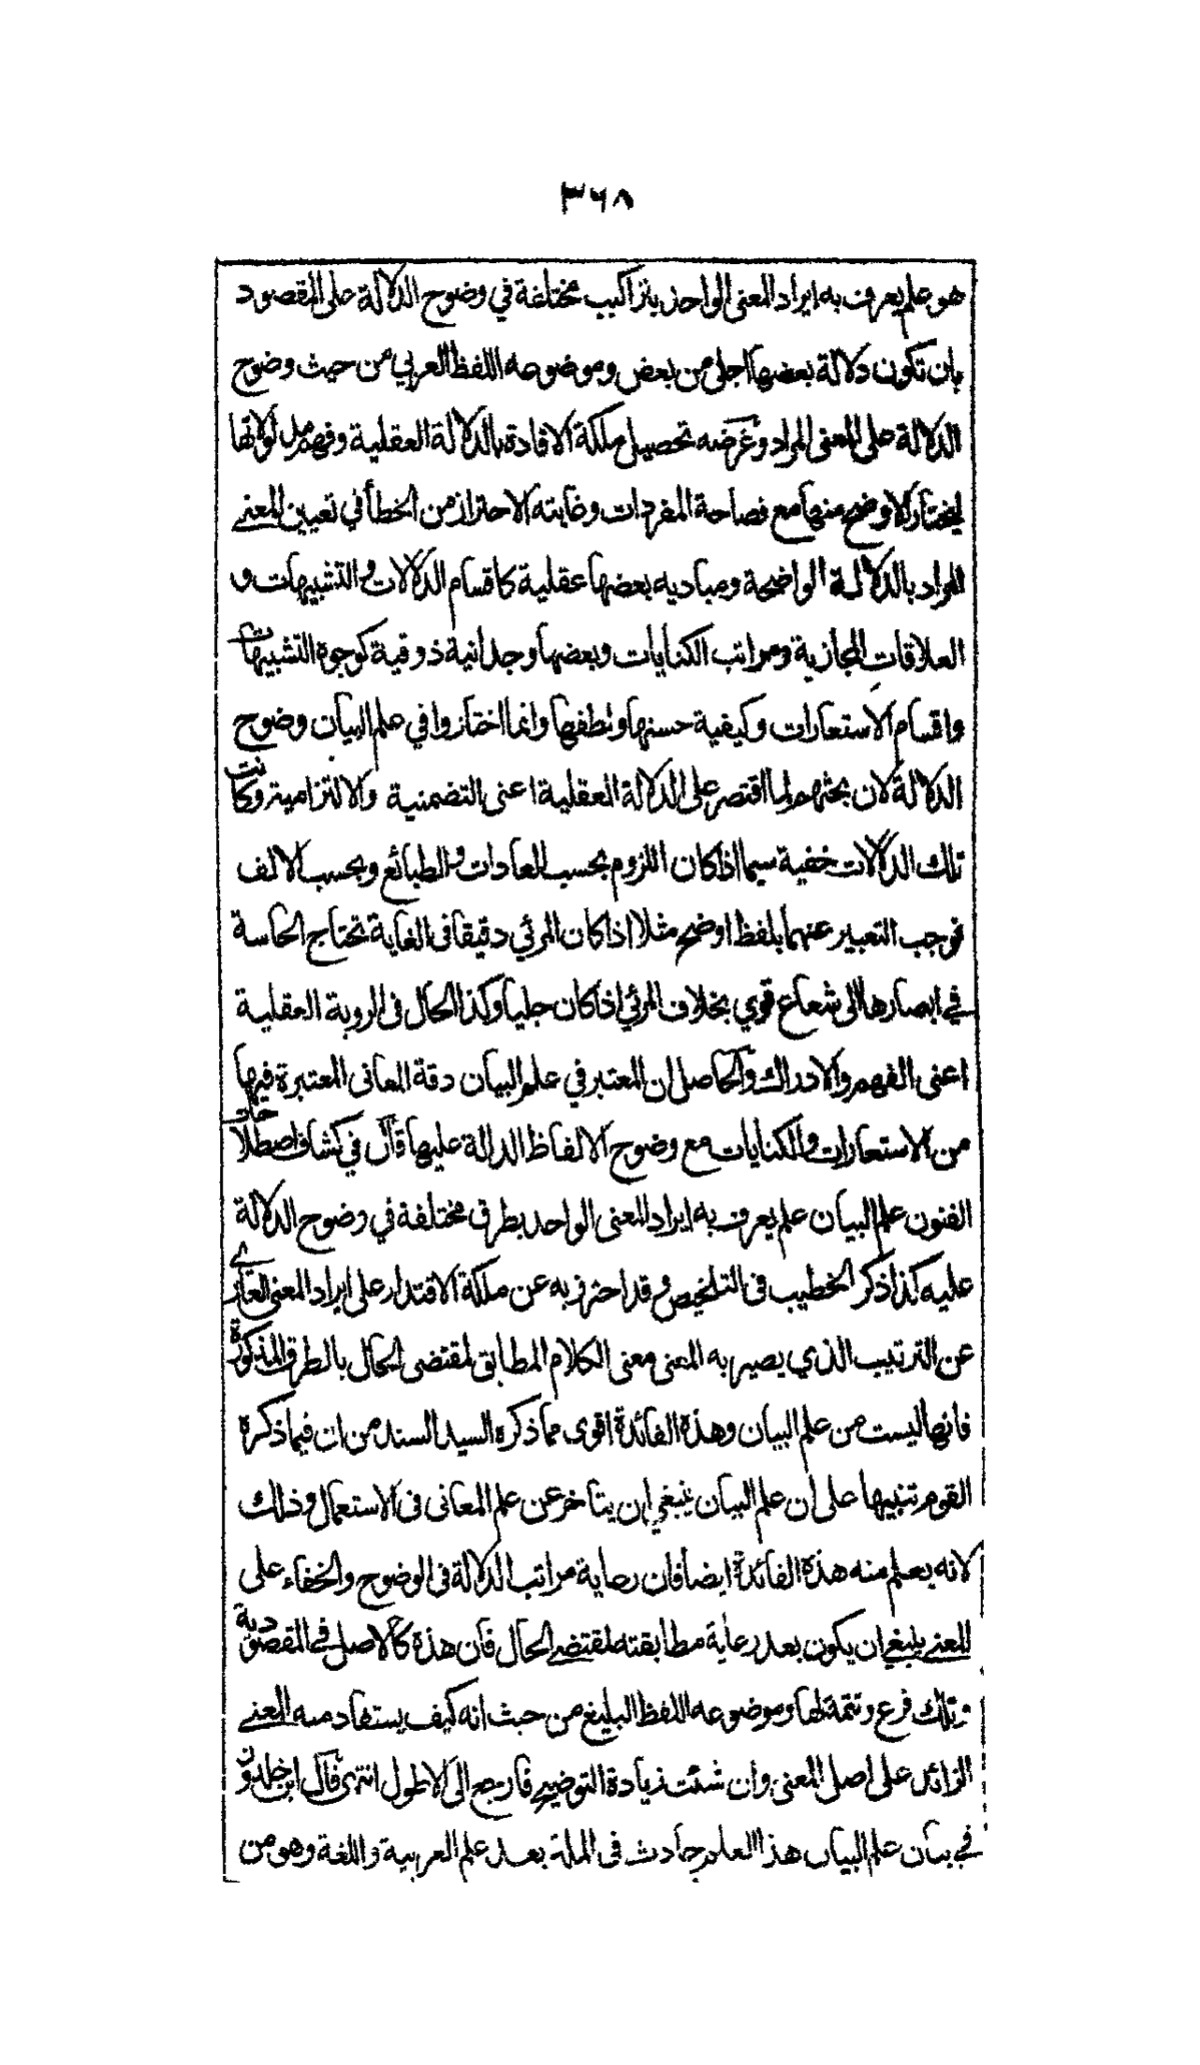 ٣٦٨
هو علم يعرف به ايراد المعنى الواحد بتراكيب مختلفة في وضوح الدلالة على المقصود
بان تكون دلالة بعضها اجلى من بعض وموضوعه اللفظ العربي من حيث وضوح
الدلالة على المعنى المراد وغرضه تحصيل ملكة الافادة بالدلالة العقلية وفهم مدلولاتها
ليختار الاوضح منها مع فصاحة المفردات وغايته الاحتراز من الخطأ في تعيين المعنى
المراد بالدلالة الواضحة ومباديه بعضها عقلية كاقسام الدلالات والتشبيهات و
العلاقات المجازية ومراتب الكنايات وبعضها وجدانية ذوقية كوجوه التشبيهات
واقسام الاستعارات وكيفية حسنها ولطفها وانما اختاروا في علم البيان وضوح
الدلالة لان بحثهم لما اقتصر على الدلالة العقلية اعنى التضمنية والالتزامية وكانت
تلك الدلالات خفية سيما اذا كان اللزوم بحسب العادات والطبائع وبحسب الالف
فوجب التعبير عنهما بلفظ اوضح مثلا اذا كان المرئي دقيقا في الغاية تحتاج الحاسة
في ابصارها الى شعاع قوي بخلاف المرئي اذا كان جليا وكذا الحال في الروية العقلية
اعنى الفهم والادراك والحاصل ان المعتبر في علم البيان دقة المعانى المعتبرة فيها
من الاستعارات والكنايات مع وضوح الالفاظ الدالة عليها قال في كشاف اصطلاحات
الفنون علم البيان علم يعرف به ايراد المعنى الواحد بطرق مختلفة في وضوح الدلالة
عليه كذا ذكر الخطيب في التلخيص وقد احترز به عن ملكة الاقتدار على ايراد المعنى العاري
عن الترتيب الذي يصير به المعنى معنى الكلام المطابق لمقتضى الحال بالطرق المذكورة
فانها ليست من علم البيان وهذه الفائدة اقوى مما ذكره السيد السند من ان فيما ذكره
القوم تنبيها على ان علم البيان ينبغي ان يتأخر عن علم المعانى في الاستعمال وذلك
لانه يعلم منه هذه الفائدة ايضا فان رعاية مراتب الدلالة في الوضوح والخفاء على
المعنى ينبغي ان يكون بعد رعاية مطابقته لمقتضى الحال فان هذه كالاصل في المقصودية
وتلك فرع وتتمة لها وموضوعه اللفظ البليغ من حيث انه كيف يستفاد منه المعنى
الزائد على اصل المعنى وان شئت زيادة التوضيح فارجع الى الاطول انتهى قال ابن خلدون
في بيان علم البيان هذا العلم حادث في الملة بعد علم العربية واللغة وهو من